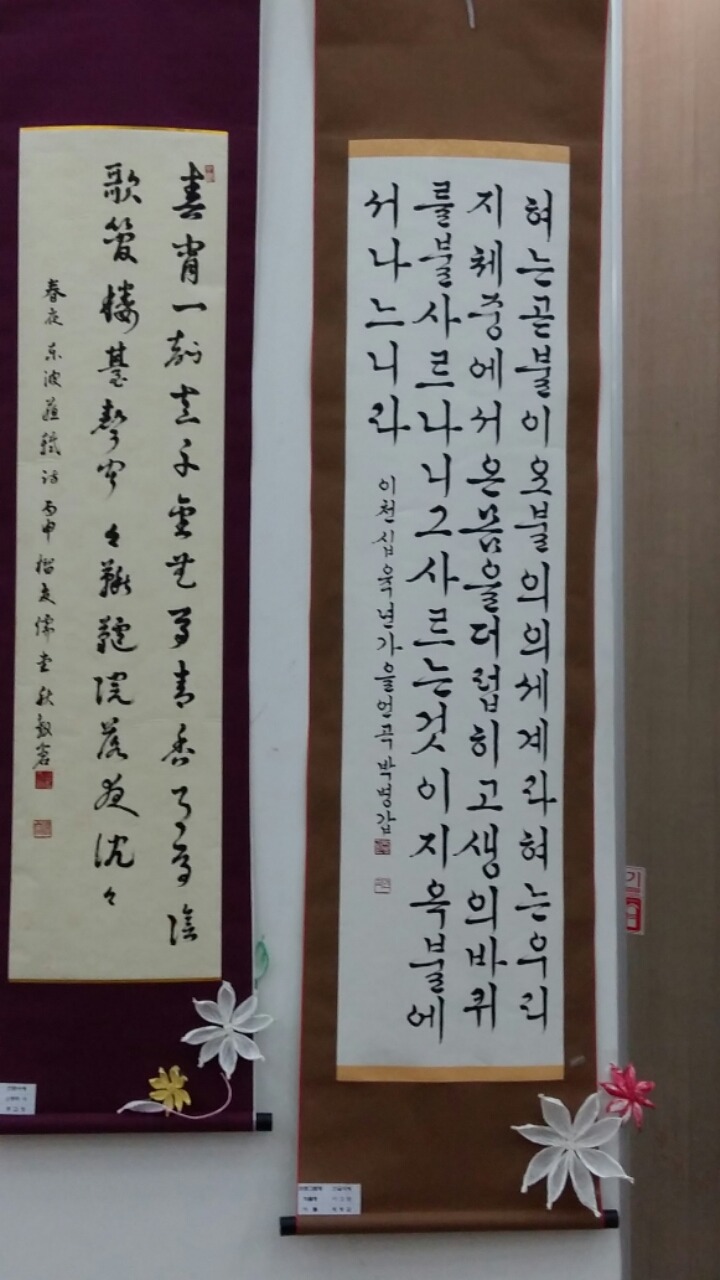 혀는곧불이오불의의세계라혀는우리
지체중에서온몸을더럽히고생의바퀴
를불사르나니그사르는것이지옥불에
서나느니라
이천십육년가을언곡박병갑
春宵一刻直千金花有清香月有陰
歌管樓臺聲寂々鞦韆院落夜沈々
春夜 東波蘇軾詩 丙申榴夏儒堂
기